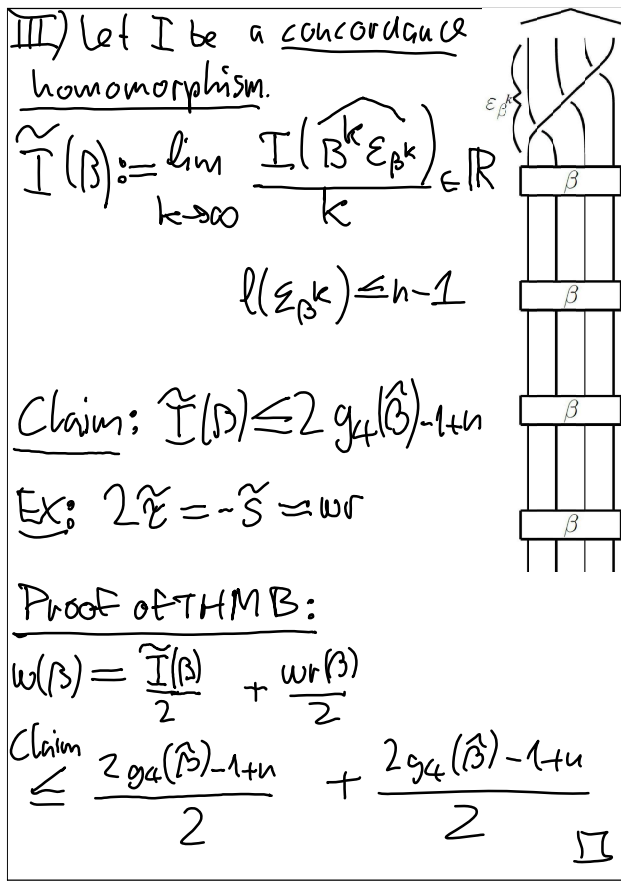 III) Let I be a concordance
homomorphism.
Ĩ(β) := lim_{k→∞} I(\widehat{β^k ε_{β^k}}) / k ∈ ℝ
l(ε_{β^k}) ≤ n-1
Claim: Ĩ(β) ≤ 2 g_4(β̂) -1+n
Ex: 2τ̃ = -s̃ = wr
Proof of THM B:
w(β) = Ĩ(β)/2 + wr(β)/2
Claim
≤ (2g_4(β̂)-1+n)/2 + (2g_4(β̂)-1+n)/2
□
ε_{β^k}
β
β
β
β